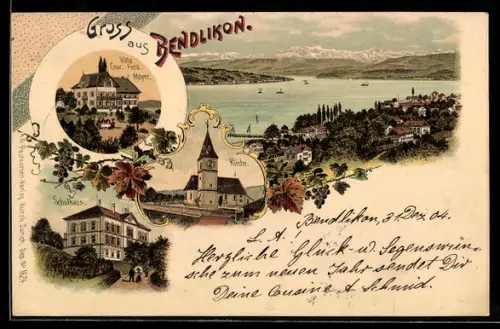 Gruss
aus
BENDLIKON.
Villa
Conr. Ferd.
Meyer.
Kirche.
Schulhaus.
Bendlikon, 31 Dez. 04.
L. A.
Herzliche Glück- u. Segenswün-
sche zum neuen Jahr sendet Dir
Deine Cousine A Schmid.